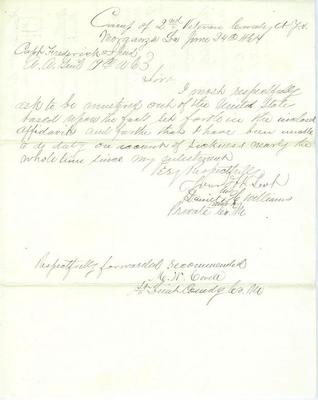 Camp of 2nd Veteran Cavalry N.Y.
Morganza La June 24th 1864
Capt Frederick Speed
A. A. Genl 19th
Sir
I most respectfully
ask to be mustered out of the United States
based upon the facts set forth in the inclosed
affidavit and further that I have been unable
to do duty on account of sickness nearly the
whole time since my enlistment
Very Respectfully
Your Ob Servt
Daniel Williams
Private Co. M
Respectfully forwarded recommended
Lt Comdg Co. M